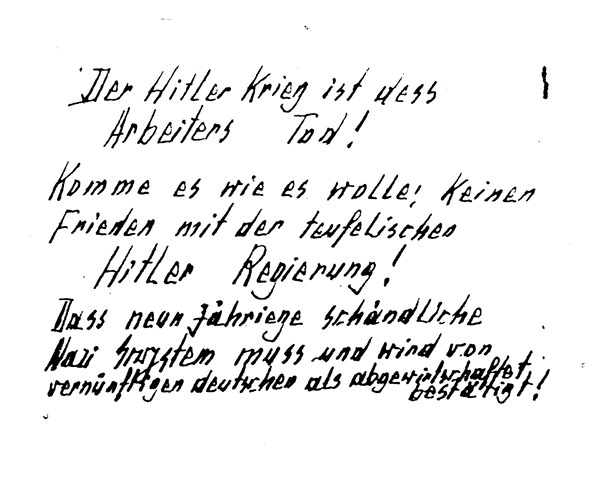 Der Hitler Krieg ist dess
Arbeiters Tod!
Komme es wie es wolle; Keinen
Frieden mit der teufelischen
Hitler Regierung!
Dass neun Jähriege schändliche
Nazi System muss und wird von
vernünftigen deutschen als abgewirtschaftet
bestätigt!